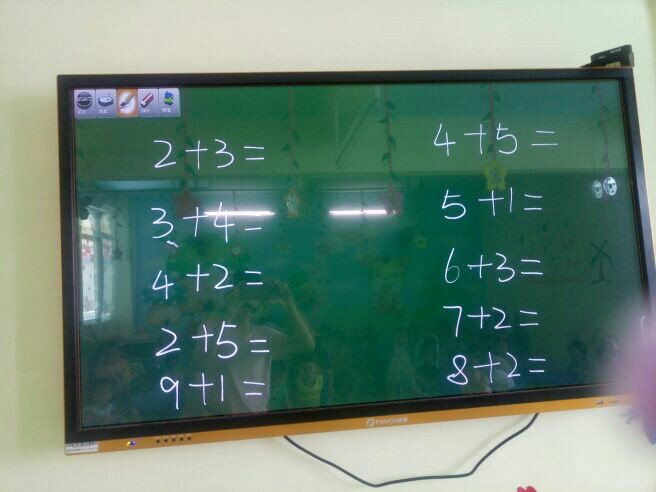 start
2+3=
3+4=
4+2=
2+5=
9+1=
4+5=
5+1=
6+3=
7+2=
8+2=